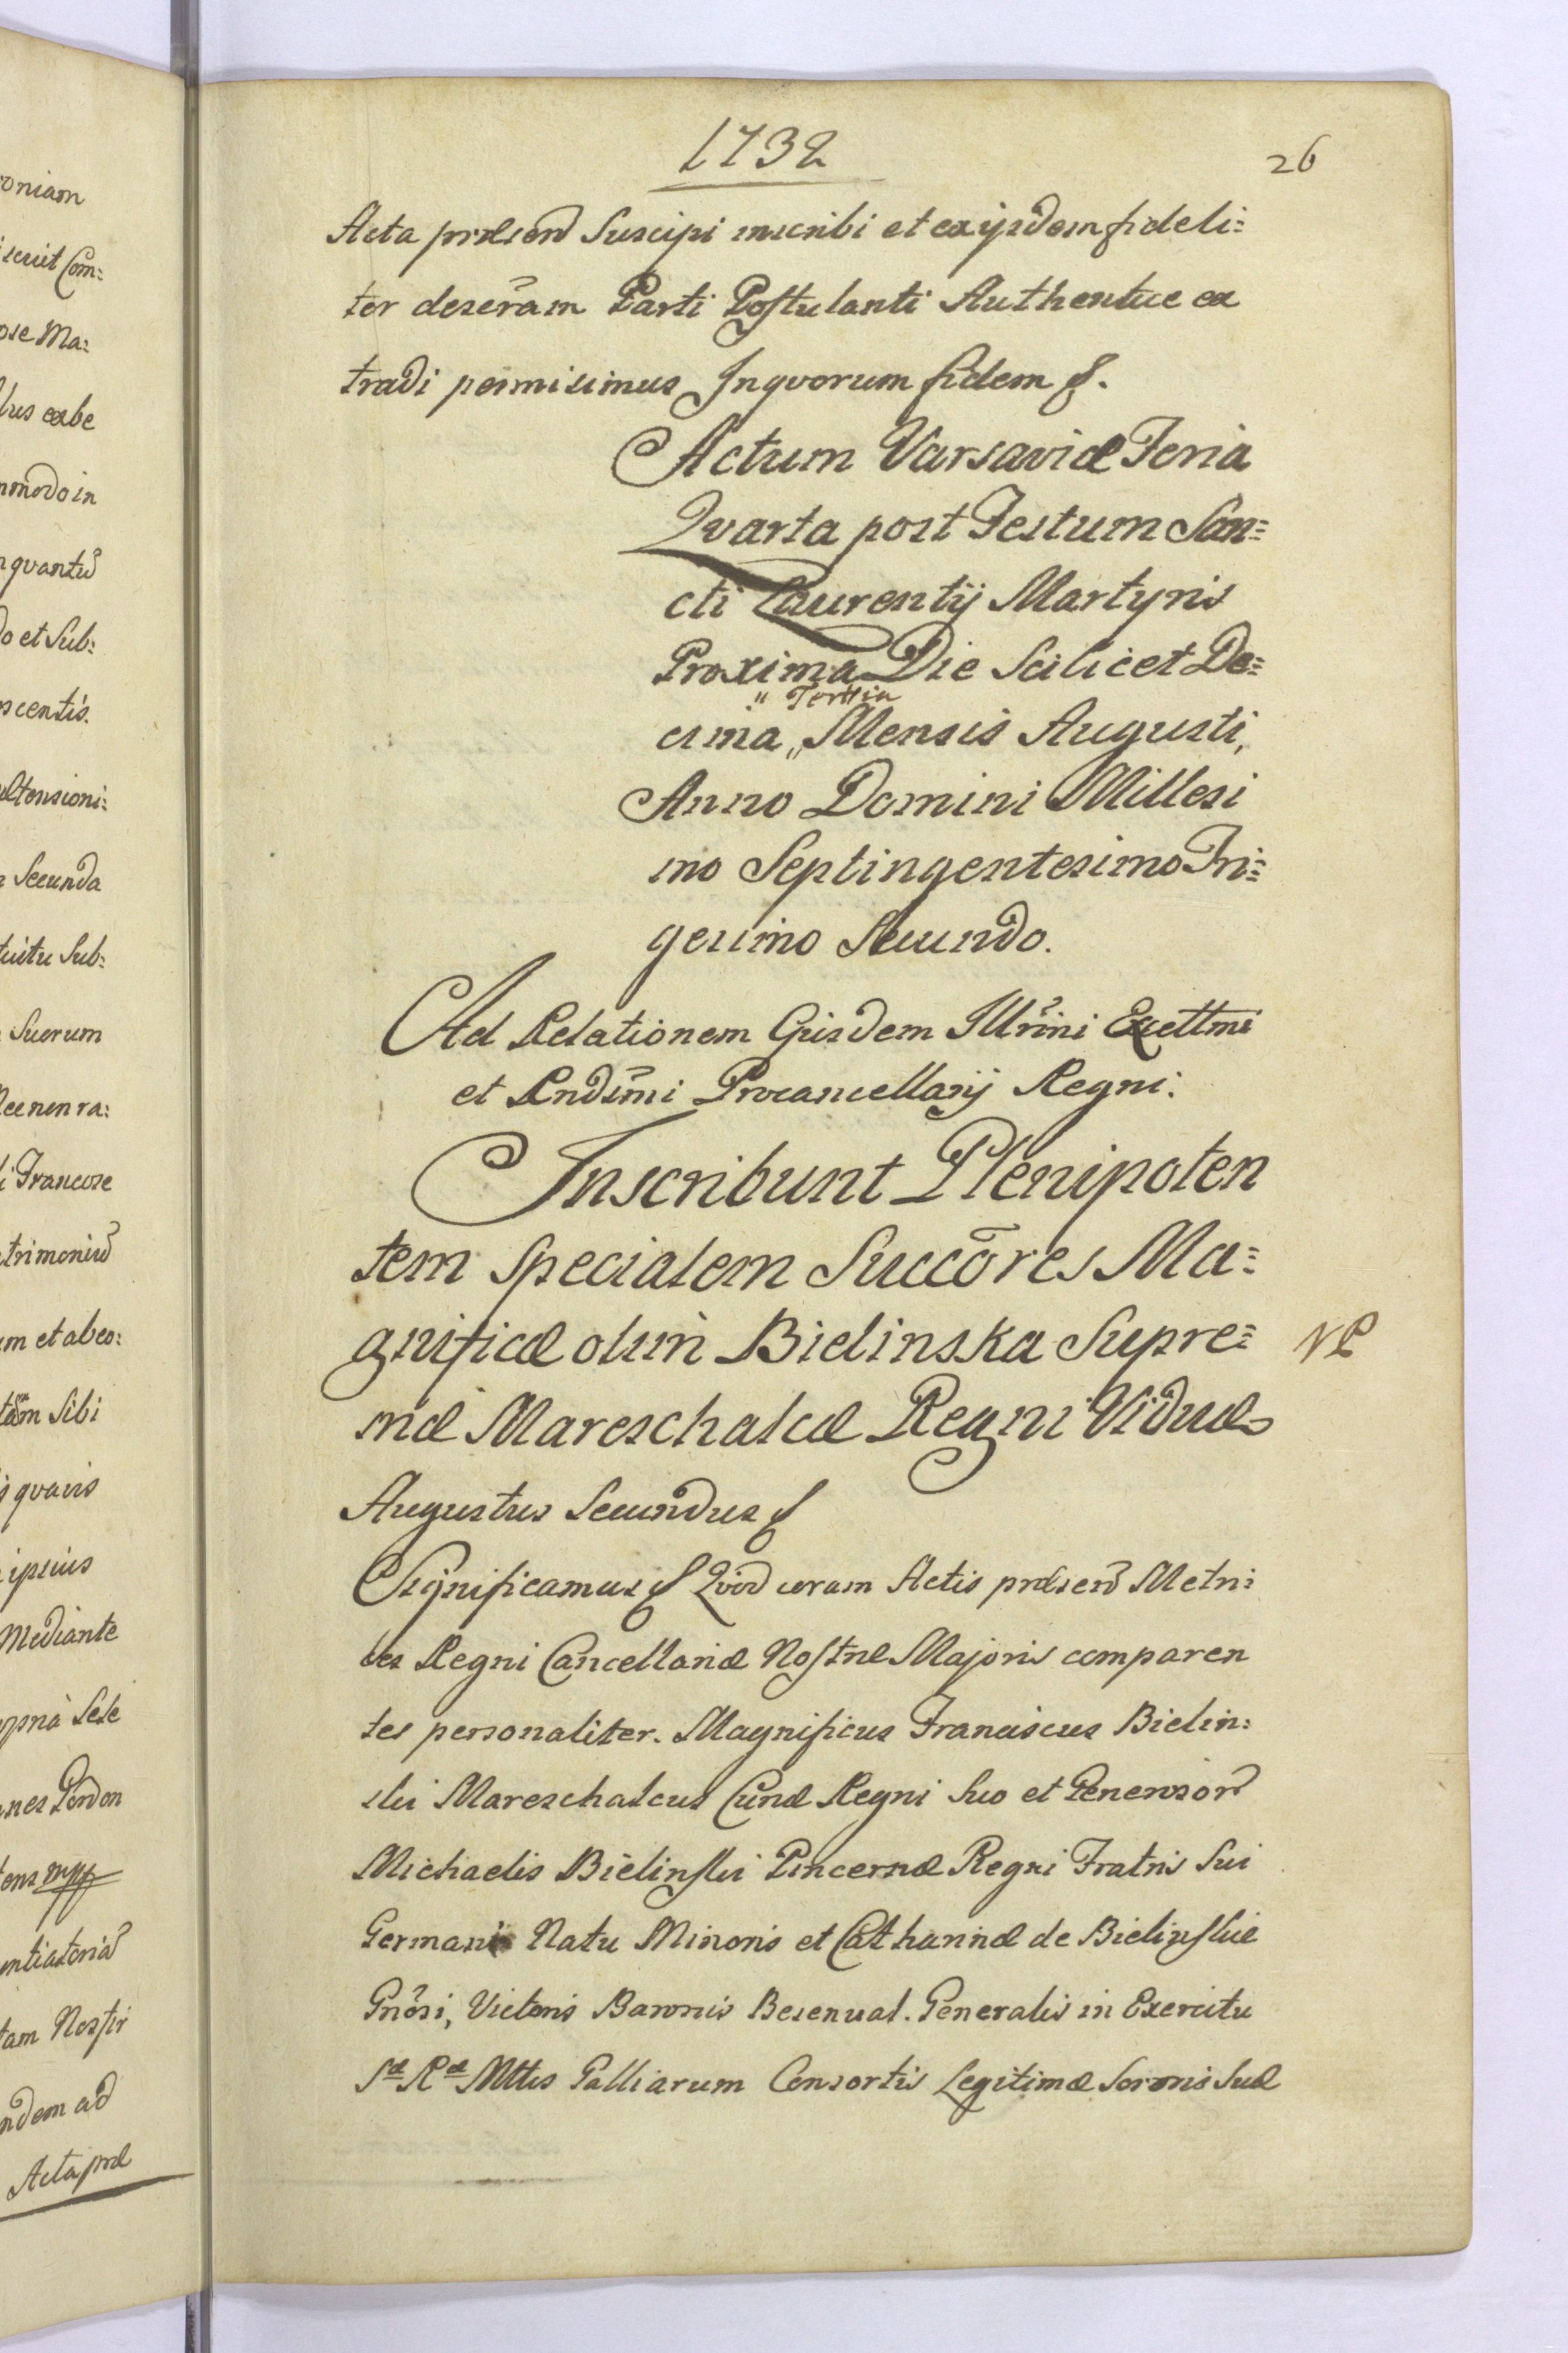 oniam
iscuit Com:
ose Ma:
bus exbe
mmodo in
nquantũ
do et Sub:
scentis.
Secunda
tuitu Sub:
Suorum
Nec non ra:
i Francose
trimoniũ
um et ab eo:
Sibi
quavis
ipsius
Mediante
Sese
entiatoria
tam Nostr
ndem ad
Acta præ
1732
26
Acta præsend Suscipi inscribi et ex ijsdem fideli:
ter deserãm Parti Postulanti Authentice ex
tradi permisimus Inqvorum fidem &.
Actum Varsaviæ Feria
Qvarta post Festum San=
cti Laurentij Martyris
Proxima Die Scilicet De=
" Tertia
cima „ Mensis Augusti,
Anno Domini Millesi
mo Septingentesimo Tri=
gesimo Secundo.
Ad Relationem Ejusdem Illr̃mi Excllmi
et Rndĩmi Procancellarij Regni.
Inscribunt Plenipoten
tem Specialem Succõres Ma=
gnificæ olim Bielinska Supre=
mæ Mareschalcæ Regni Viduæ
NP
Augustus Secundus &
Significamus & Qvod coram Actis præsend Metri:
ces Regni Cancellariæ Nostræ Majoris comparen
tes personaliter. Magnificus Franciscus Bielin:
ski Mareschalcus Curiæ Regni Suo et Generosor̃
Michaelis Bielinski Pincernæ Regni Fratris Sui
Germani Natu Minoris et Catharinæ de Bielinskie
Gnõsi, Victoris Baronis Besenval. Generalis in Exercitu
Sæ Ræ Mttis Galliarum Consortis Legitimæ Sororis Suæ